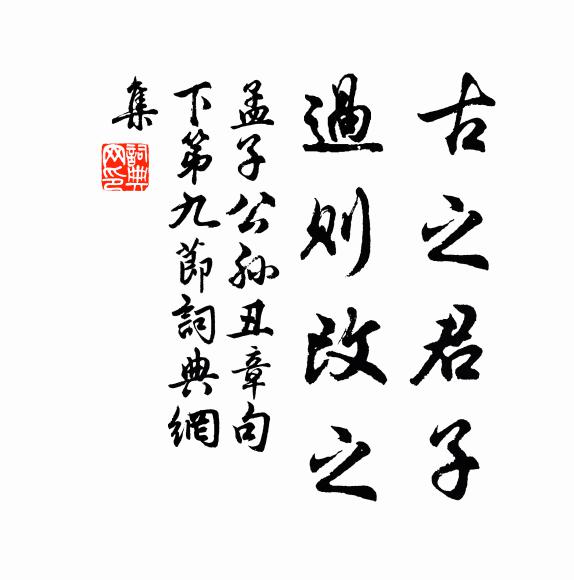 古之君子
過則改之
孟子公孫丑章句
下第九節詞典網
集
詞典
网印